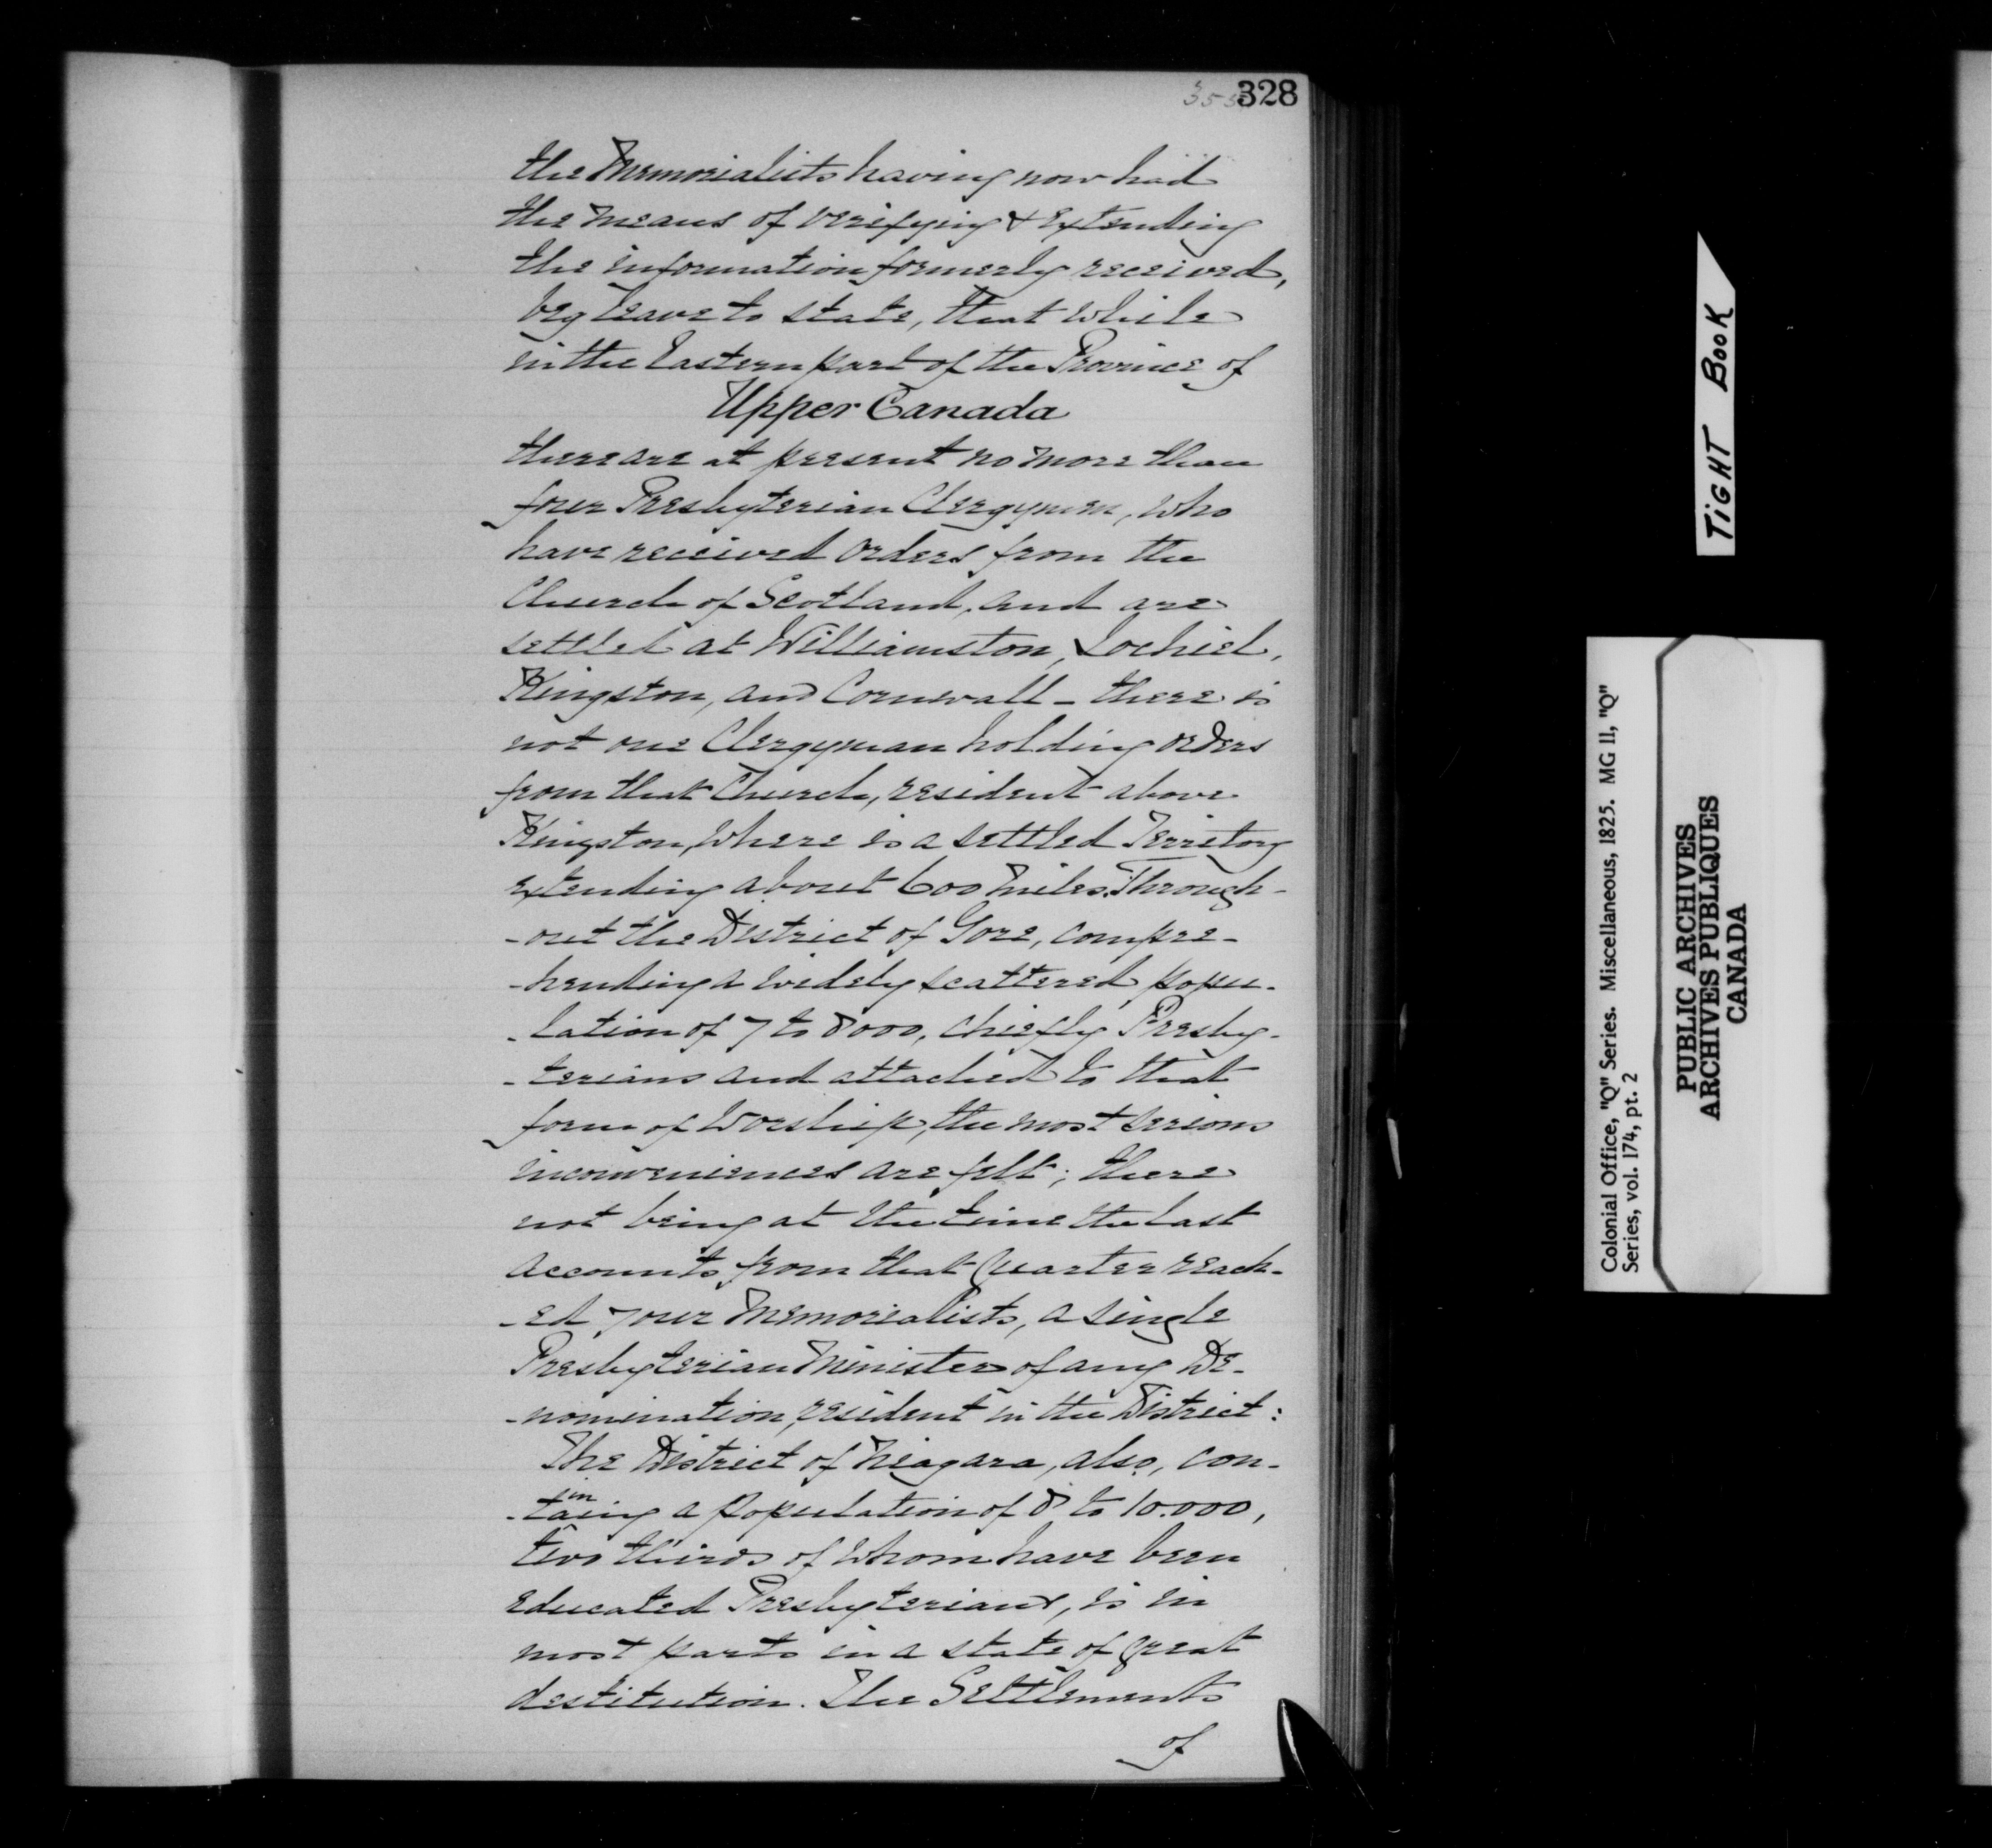 328
the Memorialists having now had
the means of verifying & extending
the information formerly received,
beg leave to state, that while
in the Eastern part of the Province of
Upper Canada
there are at present no more than
four Presbyterian Clergymen, who
have received orders from the
Church of Scotland, and are
settled at Williamston, Lochiel,
Kingston, and Cornwall – there is
not one Clergyman holding orders
from that Church, resident above
Kingston, where is a settled Territory
extending about 600 miles. Through-
-out the District of Gore, compre-
-hending a widely scattered popu-
-lation of 7 to 8000, chiefly Presby-
-terians and attached to that
form of Worship, the most serious
inconveniences are felt; there
not being at the time the last
accounts from that Quarter reach-
-ed your Memorialists, a single
Presbyterian Minister of any De-
-nomination, resident in the District:
The District of Niagara, also, con-
-taining a population of 8 to 10.000,
two thirds of whom have been
educated Presbyterians, is in
most parts in a state of great
destitution. The Settlements
of
TIGHT BOOK
Colonial Office, "Q" Series. Miscellaneous, 1825. MG 11, "Q"
Series, vol. 174, pt. 2
PUBLIC ARCHIVES
ARCHIVES PUBLIQUES
CANADA